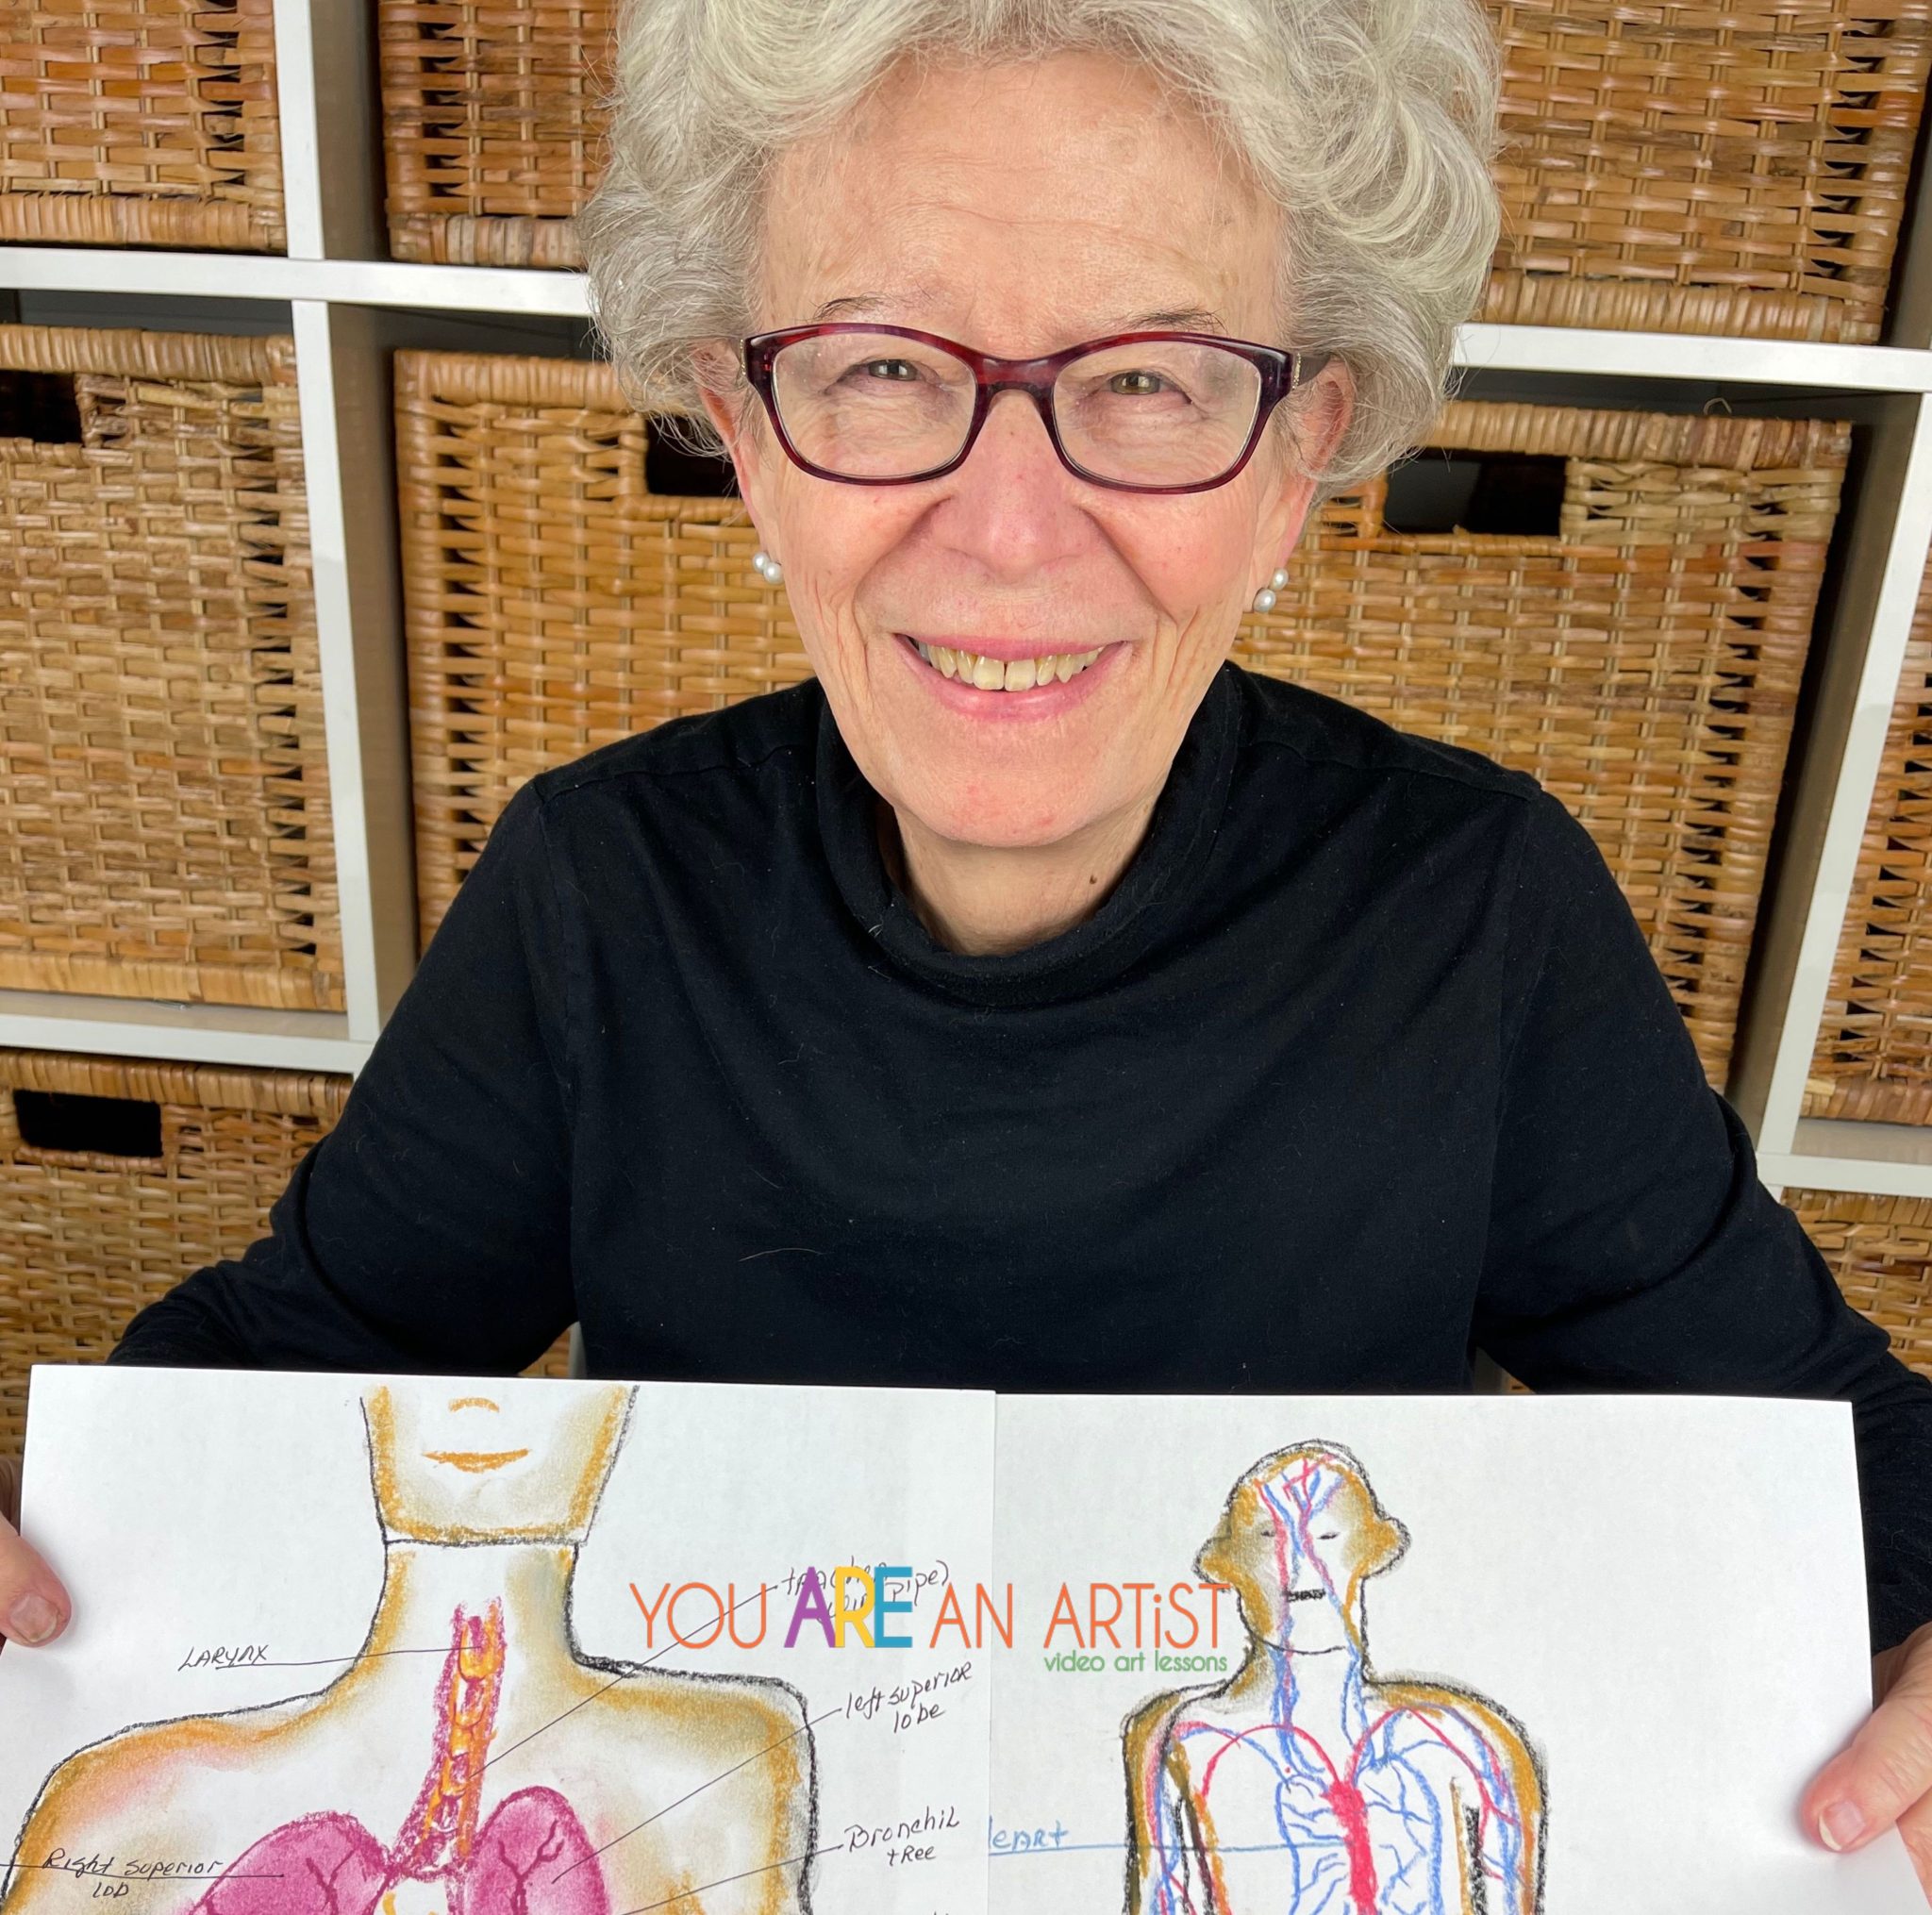 trachea
(windpipe)
YOU ARE AN ARTiST
video art lessons
LARYNX
left superior
lobe
Bronchil
tree
Right superior
lob
Heart